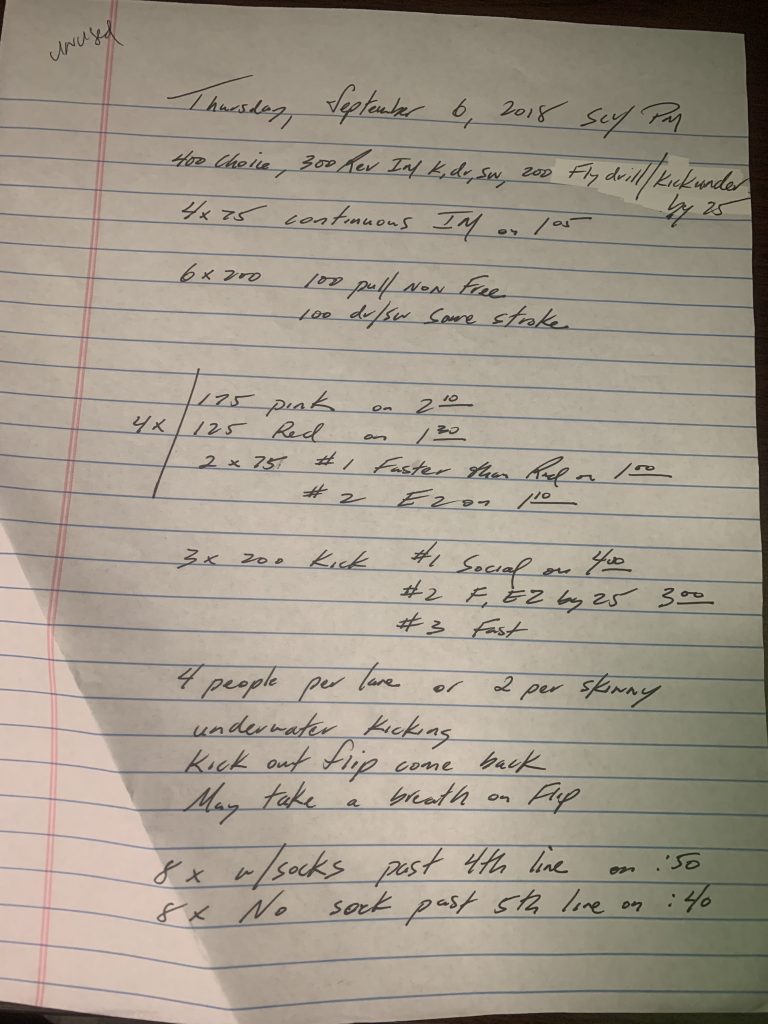 unused
Thursday, September 6, 2018 SCY PM
400 choice, 300 Rev IM K, dr, sw, 200 Fly drill/Kick under
by 25
4 x 75 continuous IM on 1 05
6 x 200 100 pull NON Free
100 dr/sw same stroke
175 pink on 2 10
4 x 125 Red on 1 30
2 x 75 #1 Faster than Red on 1 00
#2 EZ on 1 10
3 x 200 Kick #1 Social on 4 00
#2 F, EZ by 25 3 00
#3 Fast
4 people per lane or 2 per skinny
underwater Kicking
Kick out flip come back
May take a breath on Flip
8 x w/socks past 4th line on :50
8 x No sock past 5th line on :40